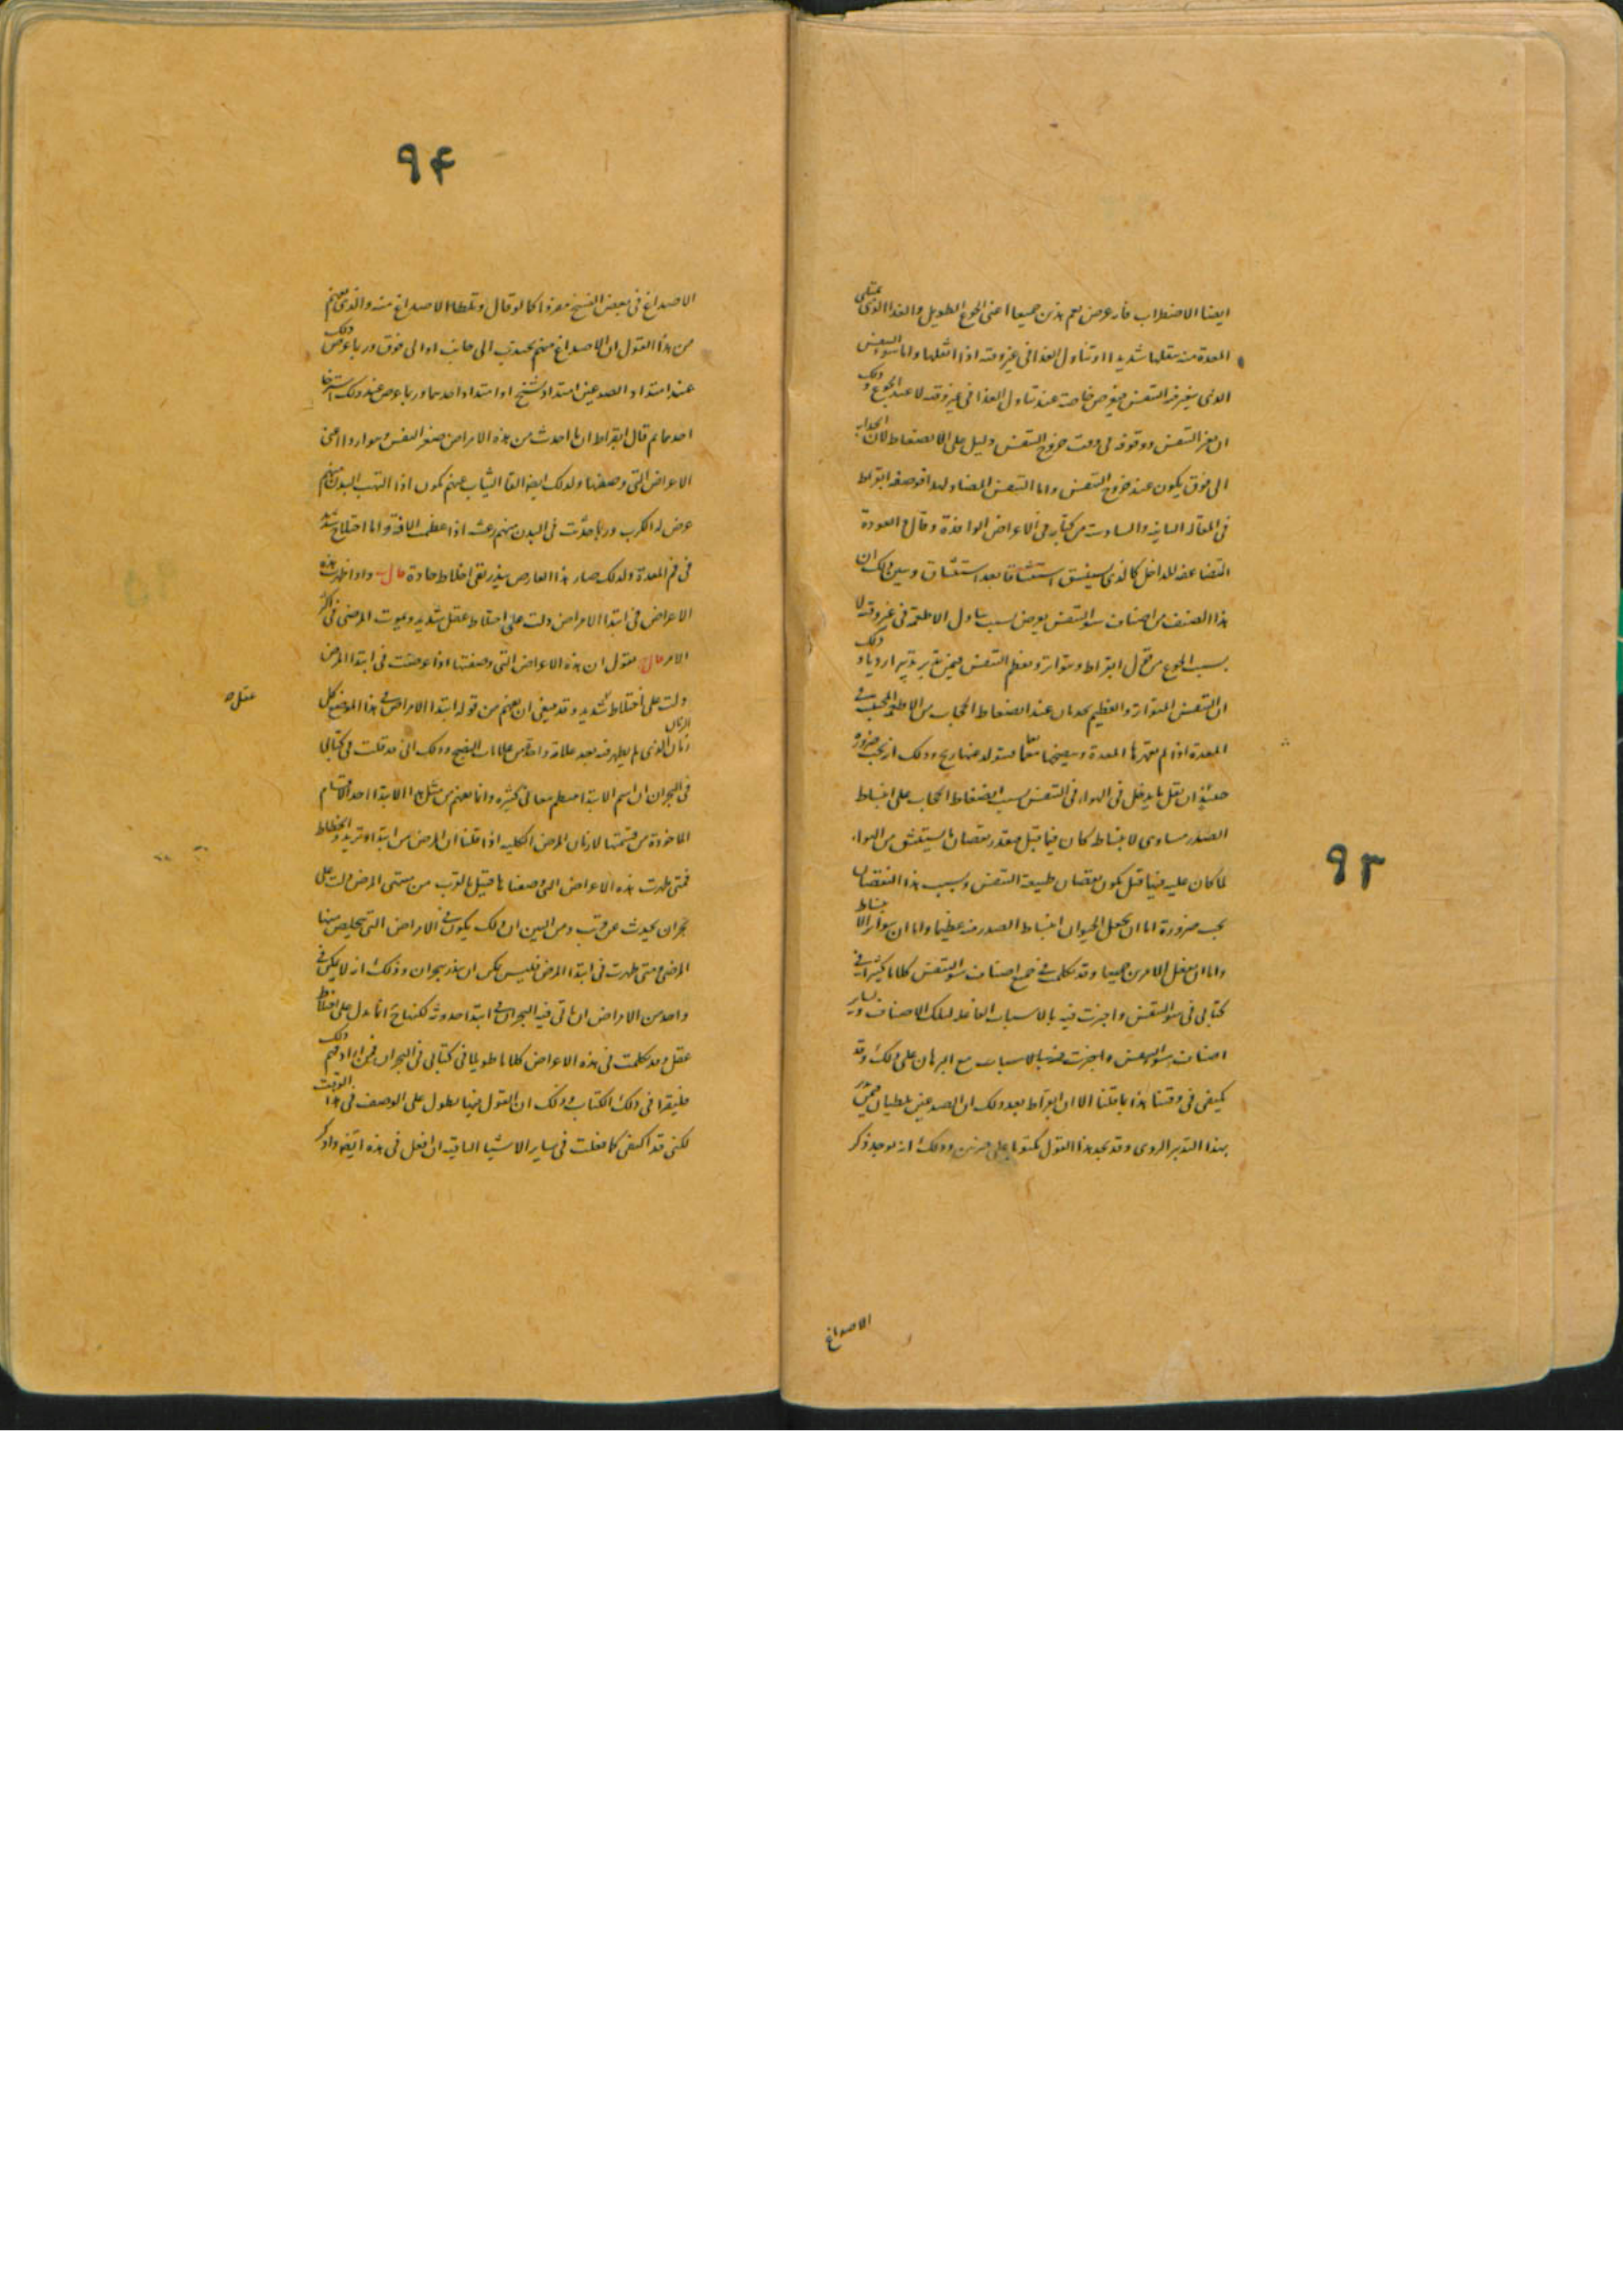 ايضا الاضطراب فانه عرض يعم هذين جميعا اعنى الجوع الطويل والغذا الذى يمتلى
المعدة منه يثقلها شديدا او تناول الغذا فى غير وقته اذا اثقلها واما سو التنفس
الذى يتغير فيه التنفس فيعرض خاصة عند تناول الغذا فى غير وقته لا عند الجوع وذلك
ان التنفس ووقوفه فى وقت خروج التنفس دليل على الانضغاط لان
الى فوق يكون عند خروج التنفس واما التنفس المضاعف ابقراط
فى المقالة الثانية والسادسة من كتابه فى الامراض الوافدة وقال العودة
المضاعفة للداخل كالذى يستنشق استنشاقا بعد استنشاق وبين ذلك ان
هذا الصنف من اصناف سو التنفس يعرض بسبب تناول الاطعمة فى غير وقته لا
بسبب الجوع من قول ابقراط ويتواتر ويعظم التنفس وذلك
ان التنفس المتواتر والعظيم يحدثان عند انضغاط الحجاب من الاطعمة فى
المعدة اذا لم تقهرها المعدة وينضجها فيتولد منها ريح وذلك انه يجب ضرورة
حينئذ ان يقل ما يدخل من الهواء فى التنفس بسبب انضغاط الحجاب على انبساط
الصدر مساوى لانبساط كان فيما قبل فبقدر نقصان ما يستنشق من الهواء
لما كان عليه فيما قبل يكون نقصان طبيعة التنفس وبسبب هذا النقصان
يجب ضرورة اما ان يجعل الحيوان انبساط الصدر منه عظيما واما ان يواتر الانبساط
واما ان يفعل الامرين جميعا وقد تكلمت فى جميع اصناف سو التنفس كلاما كثيرا فى
كتابى فى سو التنفس واخبرت فيه بالاسباب الفاعلة لتلك الاصناف وساير
اصناف سو التنفس واخبرت فيه بالاسباب مع البرهان على ذلك وقد
يكتفى فى وقتنا هذا بما قلنا الا ان ابقراط بعد ذلك ان الصدغين يلطيان
بهذا التدبير الردى وقد نجد هذا القول مكتوبا على ضربين وذلك انه يوجد ذكر
الاصداغ
٩٣
٩۴
الاصداغ فى بعض النسخ مفردا كما لو قال وتلطا الاصداغ منه والذى يفهم
من هذا القول ان الاصداغ منهم تجذب الى جانب او الى فوق وربما عرض ذلك
عند امتداد الصدغين امتداد تشنج او امتداد احدهما وربما عرض عند ذلك استرخا
احدهما ثم قال ابقراط ان ما احدث من هذه الامراض صغر النفس وهو اردا اعنى
الاعراض التى وصفتها ولذلك ايضا القا الثياب عنهم يكون اذا التهب البدن منهم
عرض له الكرب وربما حدثت فى البدن منهم رعشة اذا عظمت الافة واما اختلاج شديد
فى فم المعدة ولذلك صار هذا العارض ينذر بقى اخلاط حادة قال واذا ظهرت هذه
الاعراض فى ابتدا الامراض دلت على اختلاط عقل شديد ويموت المرضى فى اكثر
الامر قال نقول ان هذه الاعراض التى وصفتها اذا عرضت فى ابتدا المرض
دلت على اختلاط شديد وقد ينبغى ان يفهم من قوله ابتدا الامراض فى هذا الموضع كل
عقل
الزمان الذى لم يظهر فيه بعد علامة واحدة من علامات النضج وذلك انى قد قلت فى كتابى
فى البحران ان اسم الابتدا معانى كثيرة وانما يفهم من مثل هذا الابتدا احد الاقسام
الماخوذة من قسمتها لازمان المرض الكلية اذا قلنا ان المرض من ابتدا وتزيد وانحطاط
فمتى ظهرت هذه الاعراض التى وصفناها قبيل بالقرب من منتهى المرض دلت على
بحران يحدث عن قرب ومن البين ان ذلك يكون فى الامراض التى يتخلص منها
المرضى متى ظهرت فى ابتدا المرض فليس يمكن ان ينذر ببحران وذلك انه لا يمكن فى
واحد من الامراض ان ياتى فيه البحران فى ابتدا حدوثه لكنها ح انما تدل على اختلاط
عقل وقد تكلمت فى هذه الاعراض كلاما طويلا فى كتابى فى البحران فمن اراد فهم ذلك
فليقرا فى ذلك الكتاب وذلك ان القول فيها يطول على الوصف فى هذا الوقت
لكنى قد اكتفى كما فعلت فى ساير الاشيا الباقية ان افعل فى هذه ايضا واذكر